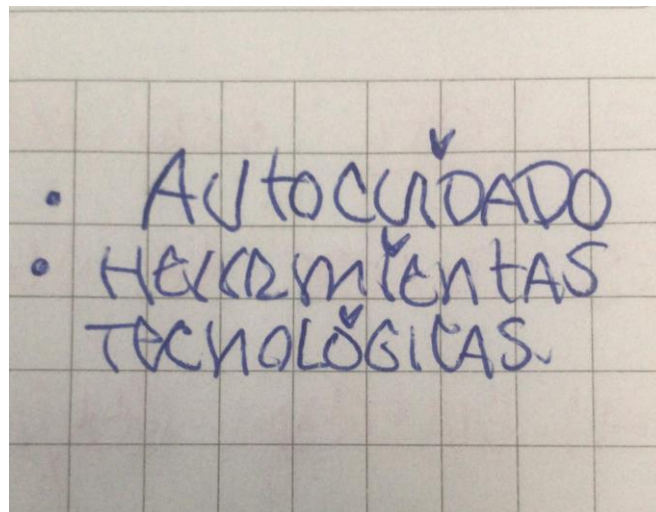 • AUtOCUiDADO
• HERRAMiEntAS
TECNOLÓGICAS.